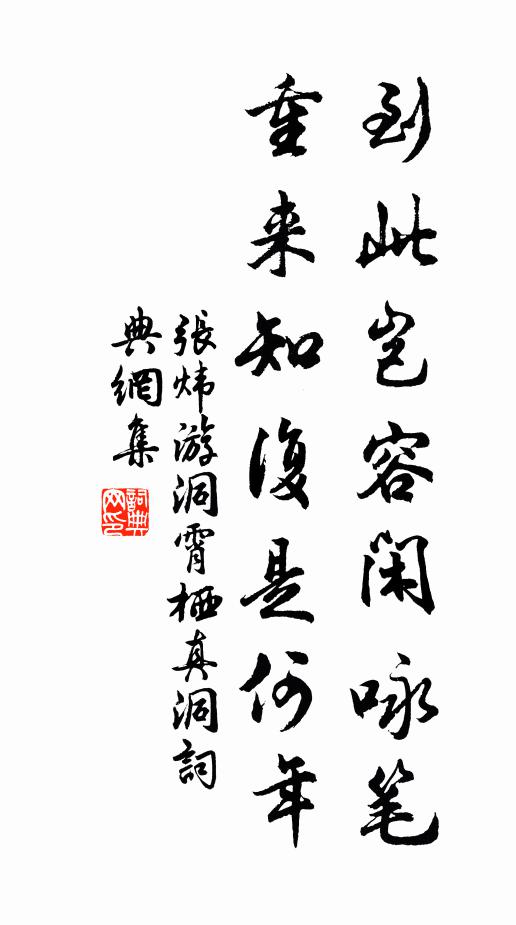 到此岂容闲咏笔
重来知復是何年
張炜游洞霄栖真洞詞
典網集
詞典网印